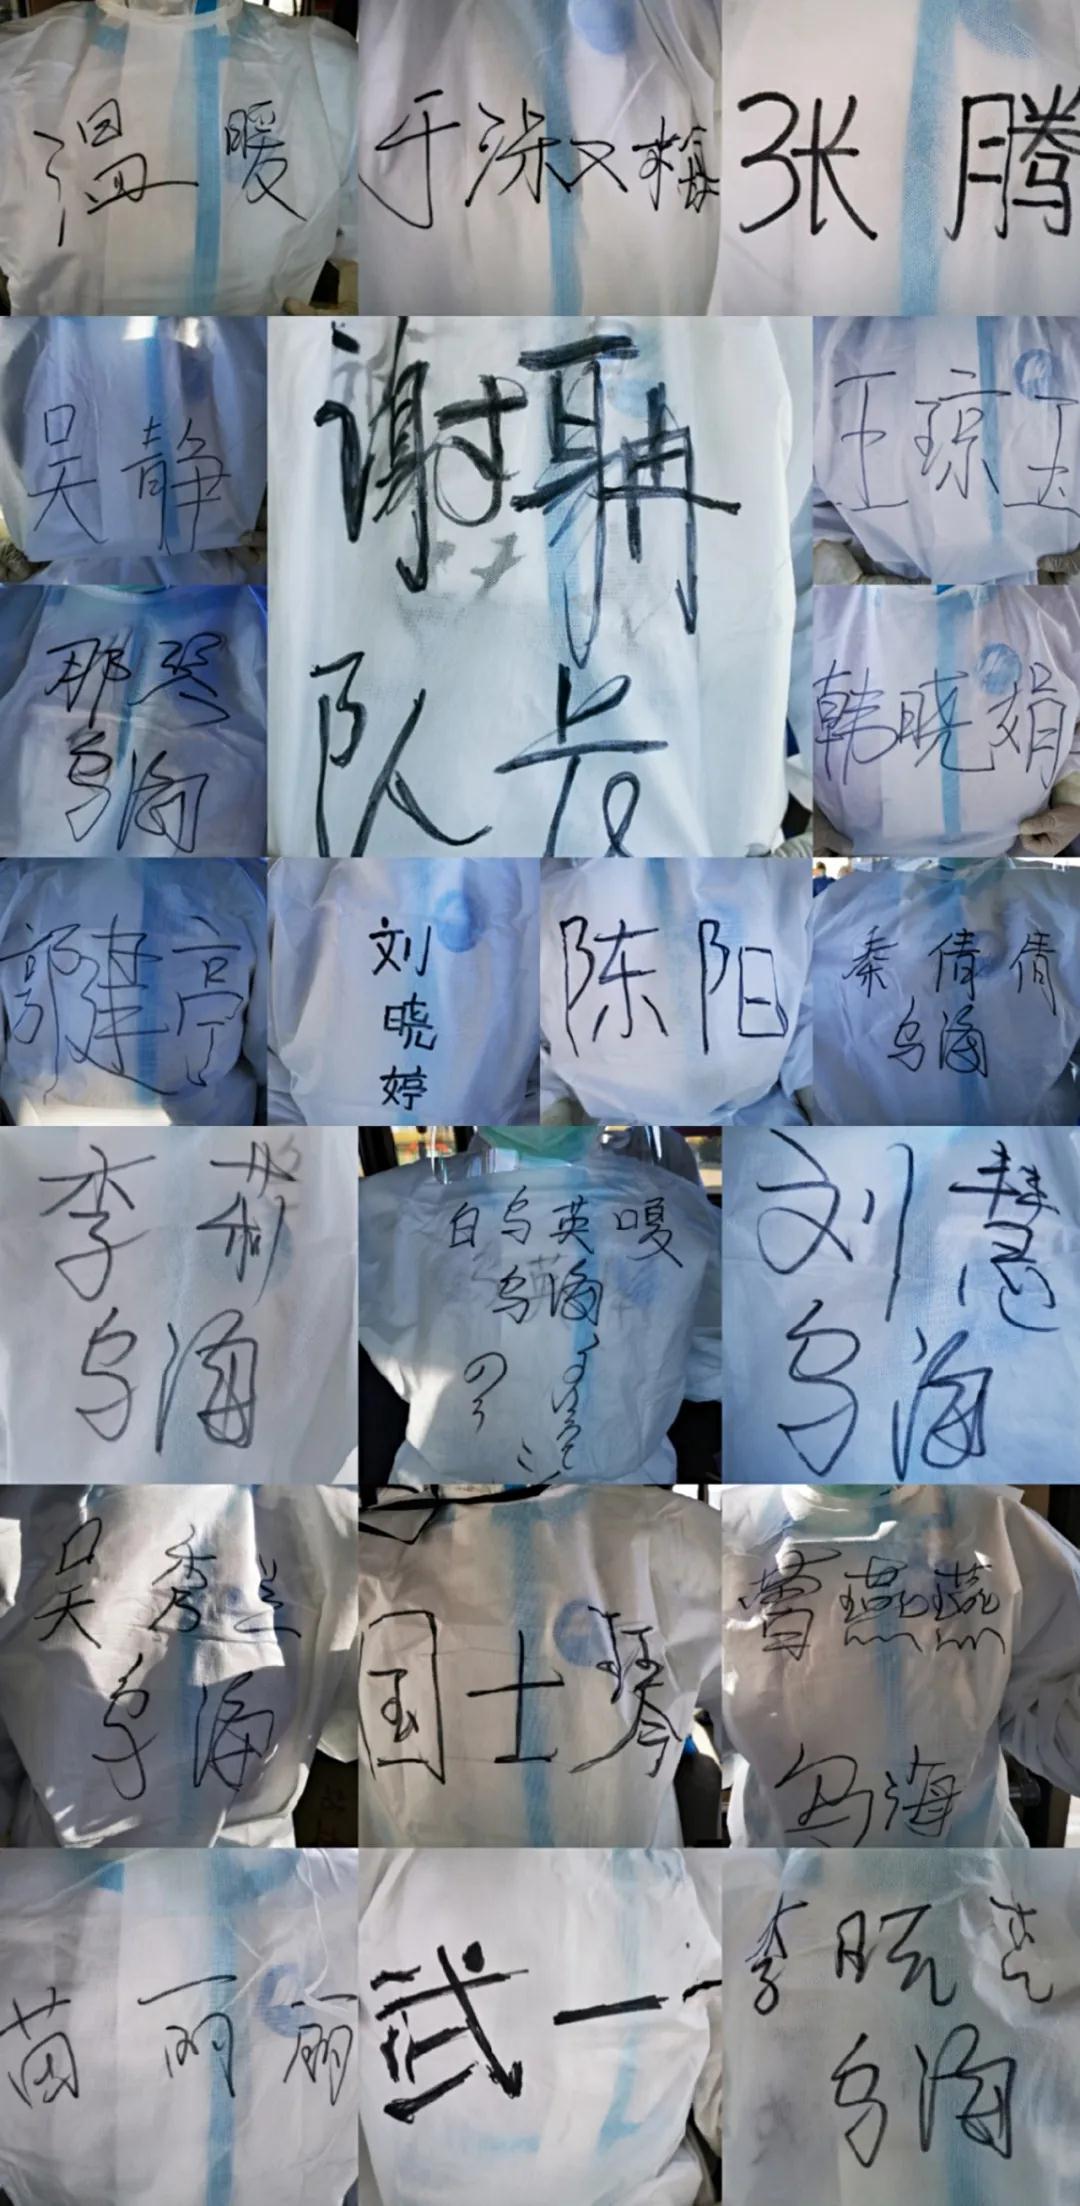 温暖
于涤又梅
张腾
吴静
谢
队长
王琼玉
那琴
乌海
韩晓娟
郭建亭
刘晓婷
陈阳
秦倩倩
乌海
李
乌海
白乌英嘎
乌海
刘慧
乌海
吴秀兰
乌海
国士琴
乌海
苗丽丽
武一
李晓
乌海